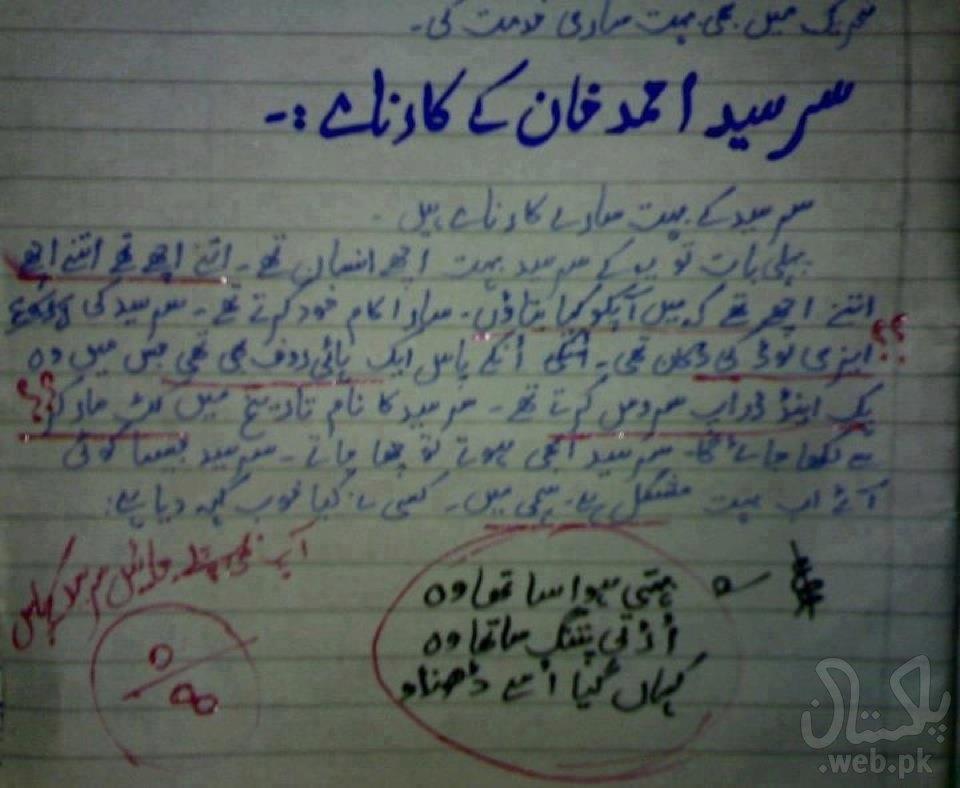 تحریک میں بھی بہت ساری خدمت کی۔
سر سید احمد خان کے کارنامے :-
سر سید کے بہت سارے کارنامے ہیں۔
پہلی بات تو یہ کے سر سید بہت اچھے انسان تھے۔ اتنے اچھے تھے اتنے اچھے
اتنے اچھے تھے کہ میں آپکو کیا بتاؤں۔ سارا کام خود کرتے تھے۔ سر سید کی
ایزی لوڈ کی دکان تھی۔ انکے پاس ایک ہائی روف بھی تھی جس میں وہ ؟؟
پک اینڈ ڈراپ سروس کرتے تھے۔ سر سید کا نام تاریخ میں مار کر ؟؟
لکھا جائے گا۔ سر سید ابھی ہوتے تو چھا جاتے۔ سر سید جیسا کوئی
آئے اب بہت مشکل ہے۔ سچی میں۔ کسی نے کیا خوب کہہ دیا ہے:
بہتی ہوا سا تھا وہ
اڑتی پتنگ سا تھا وہ
کہاں گیا اسے ڈھنڈو
آپ
0/100
پاکستان
.web.pk